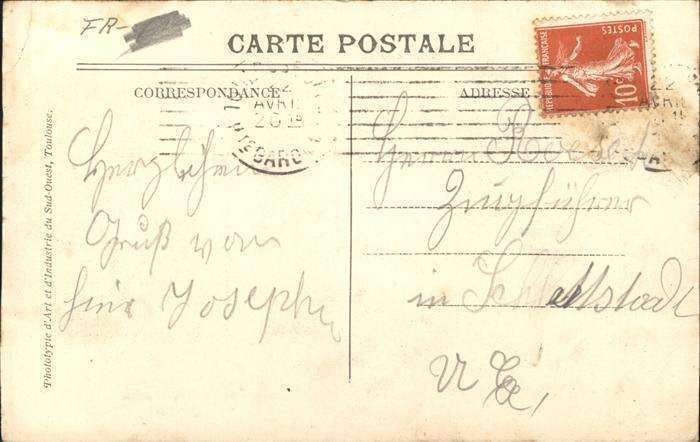 FR-
CARTE POSTALE
CORRESPONDANCE
ADRESSE
REPUBLIQUE FRANÇAISE
POSTES
10c
22
AVRIL
AVRIL
20 15
Hte GARONNE
Herzlichen
Gruß von
Joseph
Herrn
Zugführer
in Schlettstadt
Phototypie d'Art et d'Industrie du Sud-Ouest, Toulouse.